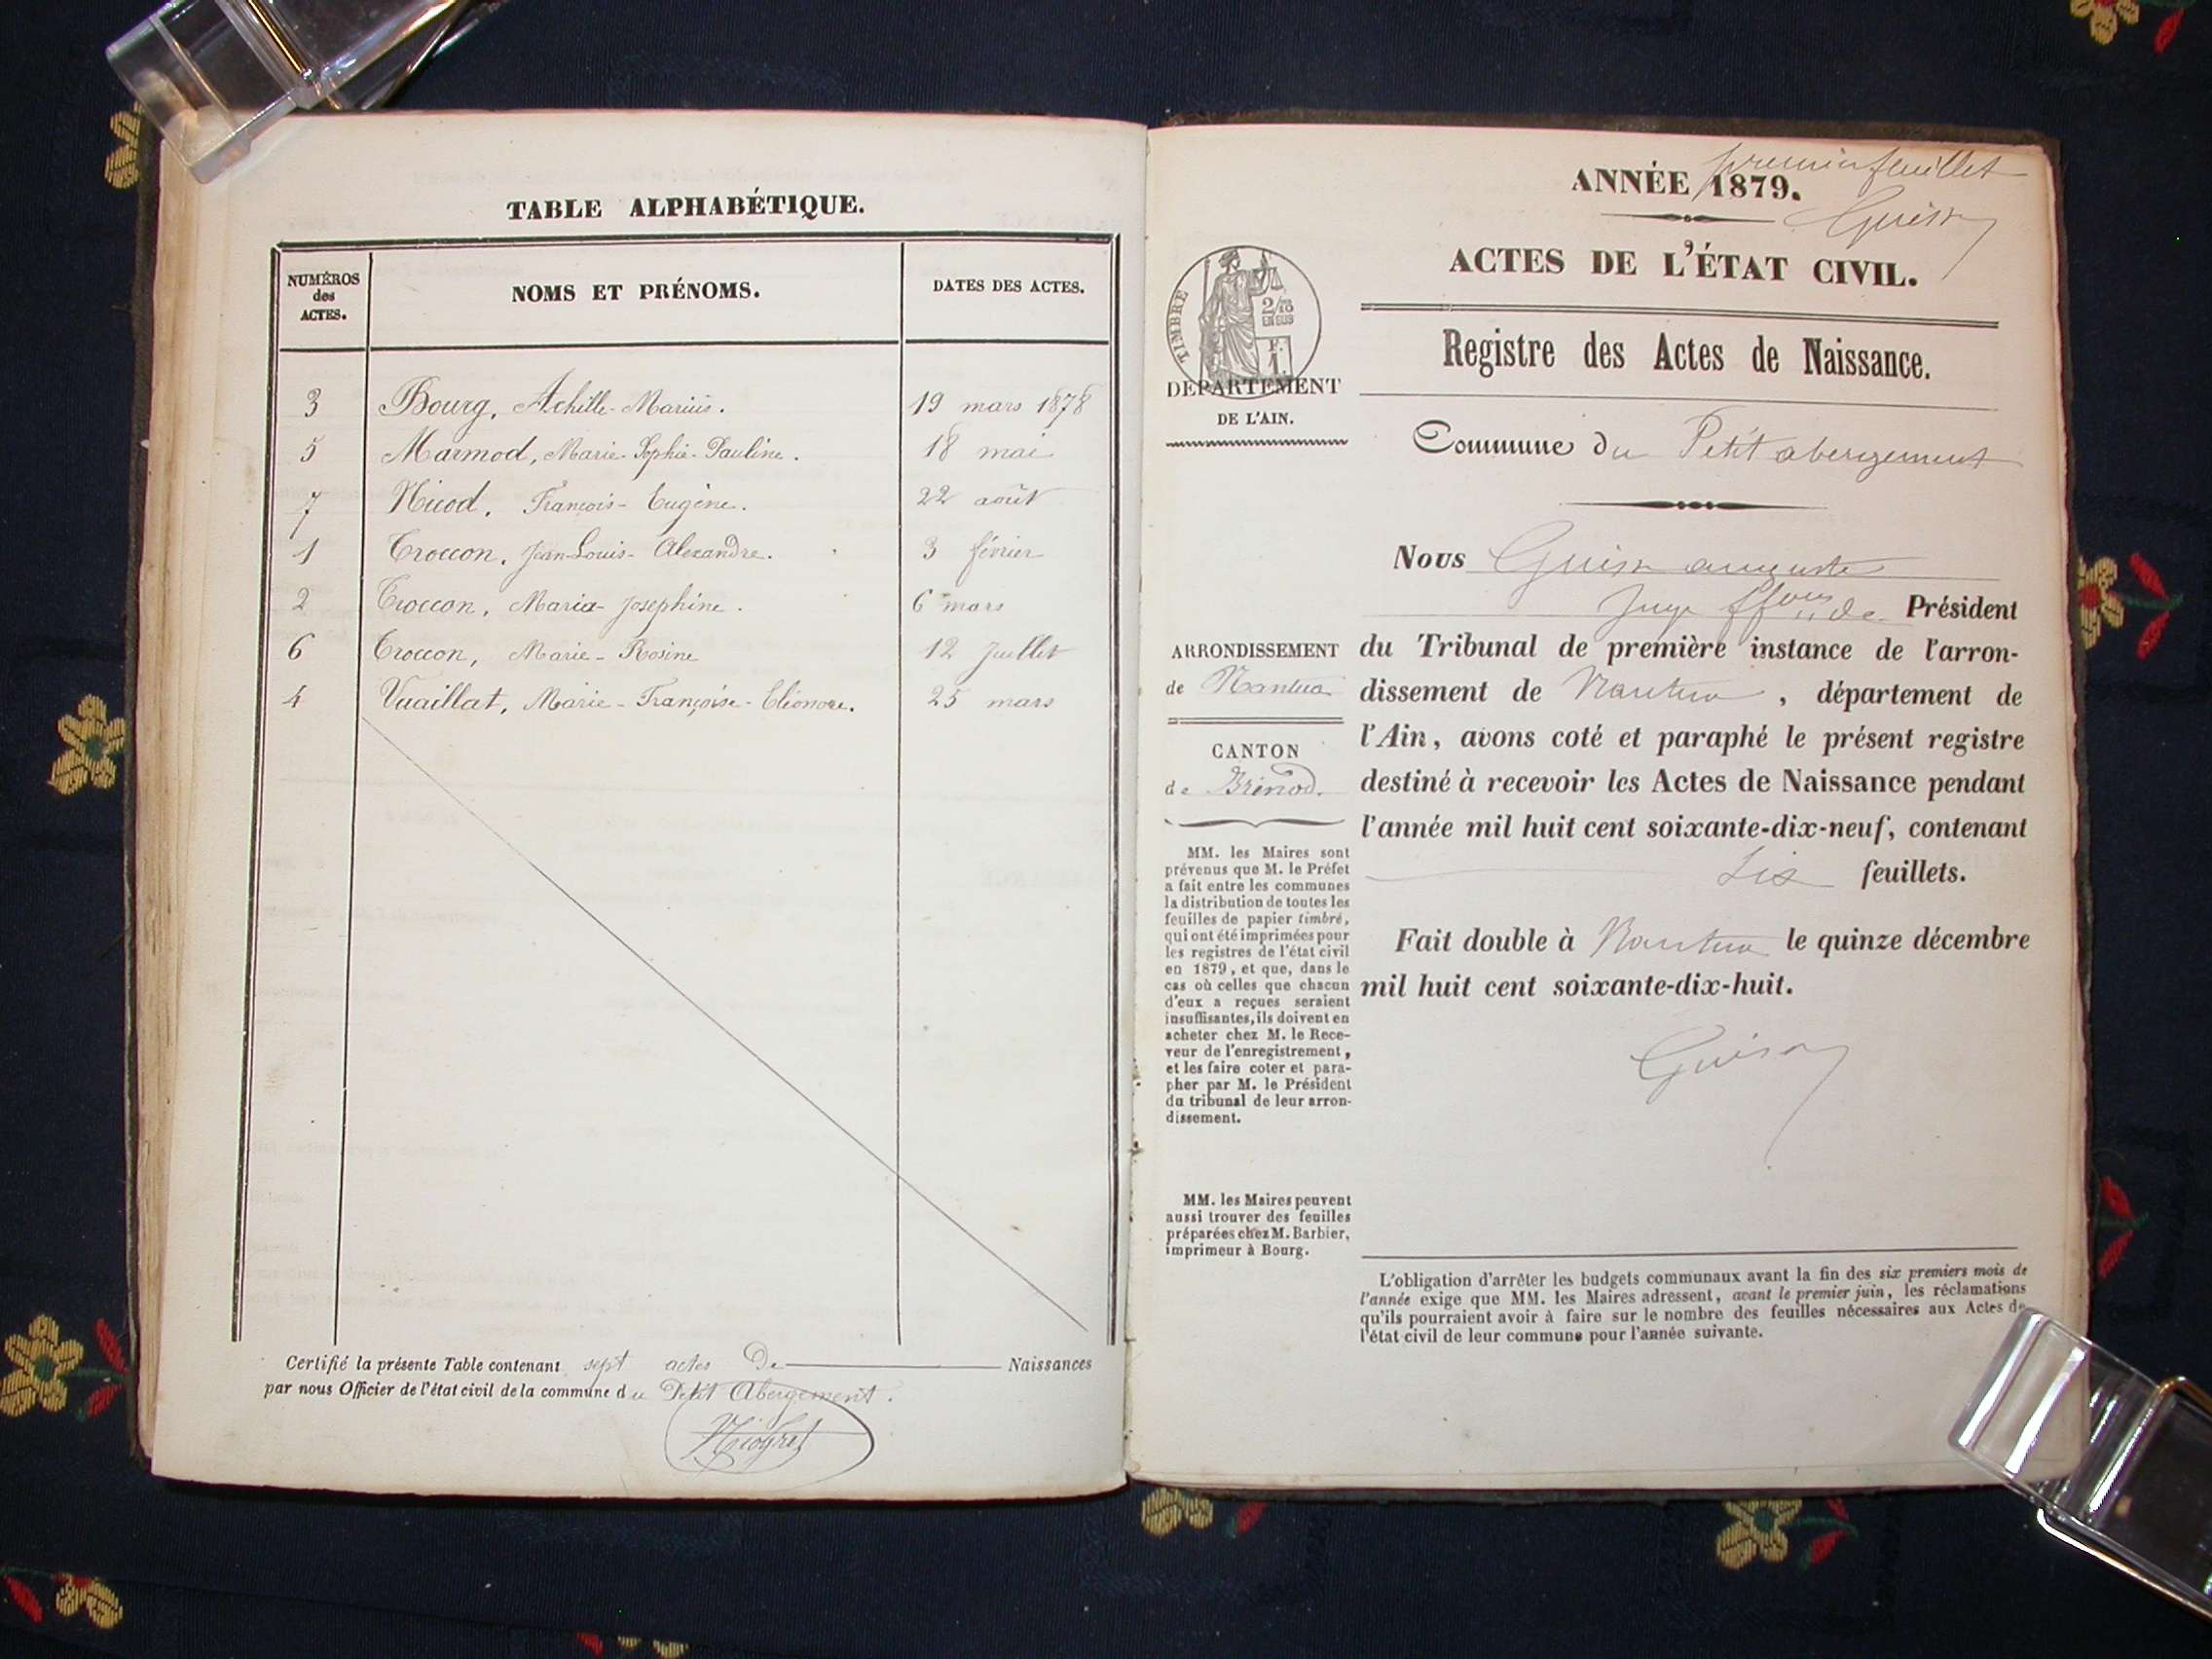 TABLE ALPHABÉTIQUE.
NUMÉROS des ACTES.
NOMS ET PRÉNOMS.
DATES DES ACTES.
3 Bourg, Achille-Marius. 19 mars 1878
5 Marmod, Marie-Sophie-Pauline. 18 mai
7 Nicod, François-Eugène. 22 août
1 Troccon, Jean-Louis-Alexandre. 3 février
2 Troccon, Maria-Joséphine. 6 mars
6 Troccon, Marie-Rosine 12 Juillet
4 Vuaillat, Marie-Françoise-Eléonore. 25 mars
Certifié la présente Table contenant sept actes De Naissances
par nous Officier de l'état civil de la commune du Petit Abergement.
premier feuillet
ANNÉE 1879.
ACTES DE L'ÉTAT CIVIL.
Registre des Actes de Naissance.
TIMBRE
2/10
EN SUS
F.
1.
DÉPARTEMENT
DE L'AIN.
Commune du Petit abergement
Nous
Juge
de Président
ARRONDISSEMENT
de Nantua
CANTON
de Brénod.
du Tribunal de première instance de l'arron-
dissement de Nantua, département de
l'Ain, avons coté et paraphé le présent registre
destiné à recevoir les Actes de Naissance pendant
l'année mil huit cent soixante-dix-neuf, contenant
Six feuillets.
Fait double à Nantua le quinze décembre
mil huit cent soixante-dix-huit.
MM. les Maires sont
prévenus que M. le Préfet
a fait entre les communes
la distribution de toutes les
feuilles de papier timbré,
qui ont été imprimées pour
les registres de l'état civil
en 1879, et que, dans le
cas où celles que chacun
d'eux a reçues seraient
insuffisantes, ils doivent en
acheter chez M. le Rece-
veur de l'enregistrement,
et les faire coter et para-
pher par M. le Président
du tribunal de leur arron-
dissement.
MM. les Maires peuvent
aussi trouver des feuilles
préparées chez M. Barbier,
imprimeur à Bourg.
L'obligation d'arrêter les budgets communaux avant la fin des six premiers mois de
l'année exige que MM. les Maires adressent, avant le premier juin, les réclamations
qu'ils pourraient avoir à faire sur le nombre des feuilles nécessaires aux Actes de
l'état civil de leur commune pour l'année suivante.